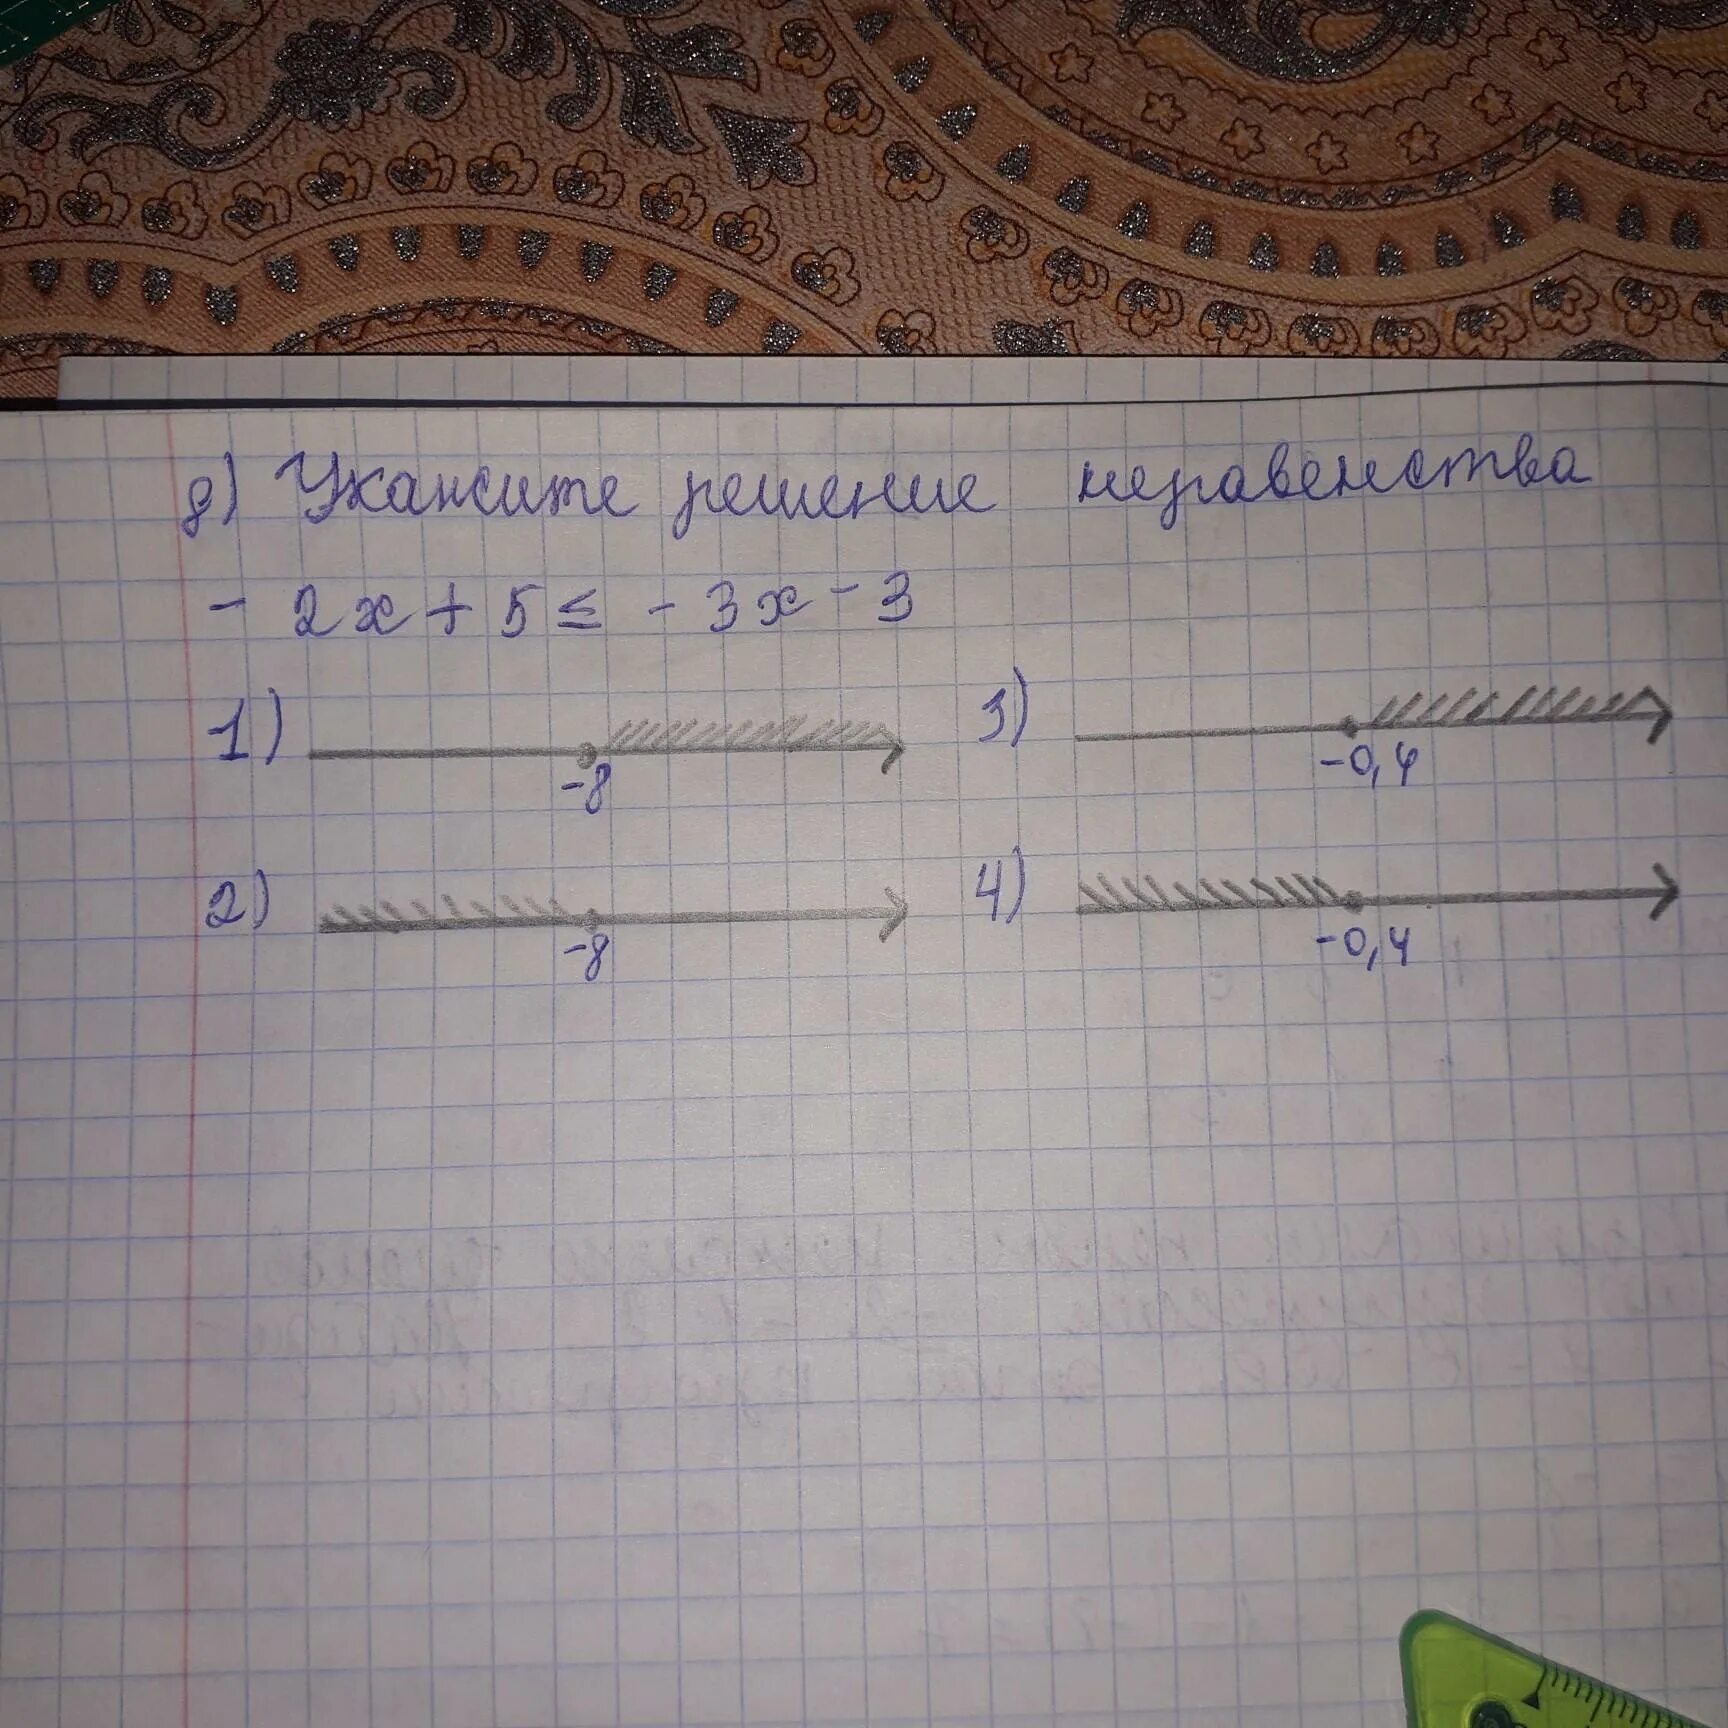 8) Укажите решение неравенства
- 2x + 5 ≤ - 3x - 3
1) -8
3) -0,4
2) -8
4) -0,4